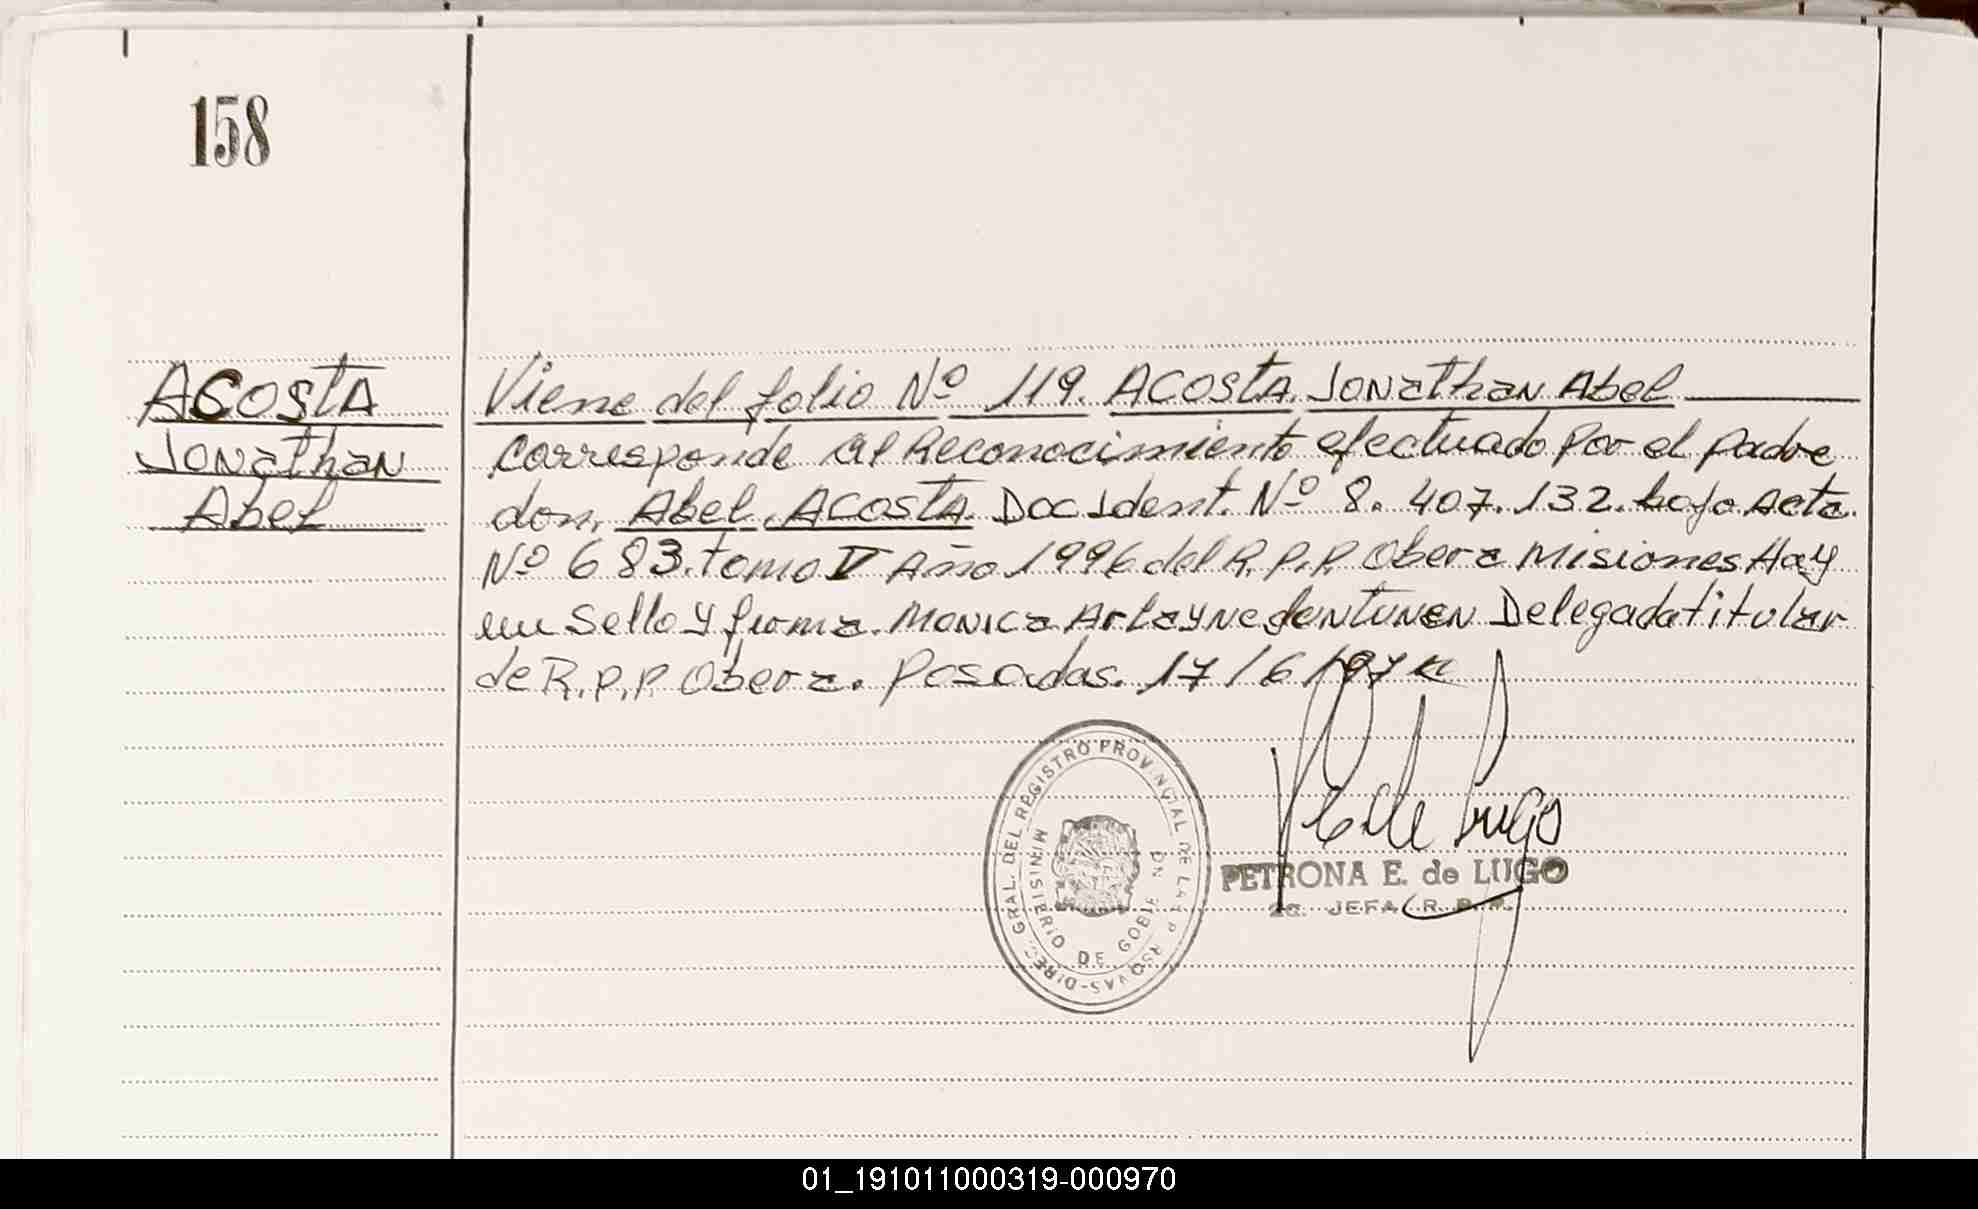 158
ACOSTA
Jonathan
Abel
Viene del folio Nº 119. ACOSTA. Jonathan Abel
Corresponde al Reconocimiento efectuado por el padre
don, Abel, ACOSTA. Doc Ident. Nº 8.407.132. bajo Acta
Nº 683. tomo V Año 1996 del R.P.P. Obera Misiones Hay
un sello y firma. Monica Arlayne Delegada titular
de R.P.P. Obera. Posadas. 17/6/97
DIREC. GRAL. DEL REGISTRO PROVINCIAL DE LAS PERSONAS
MINISTERIO DE GOBIERNO
PETRONA E. de LUGO
JEFA R.P.P.
01_191011000319-000970